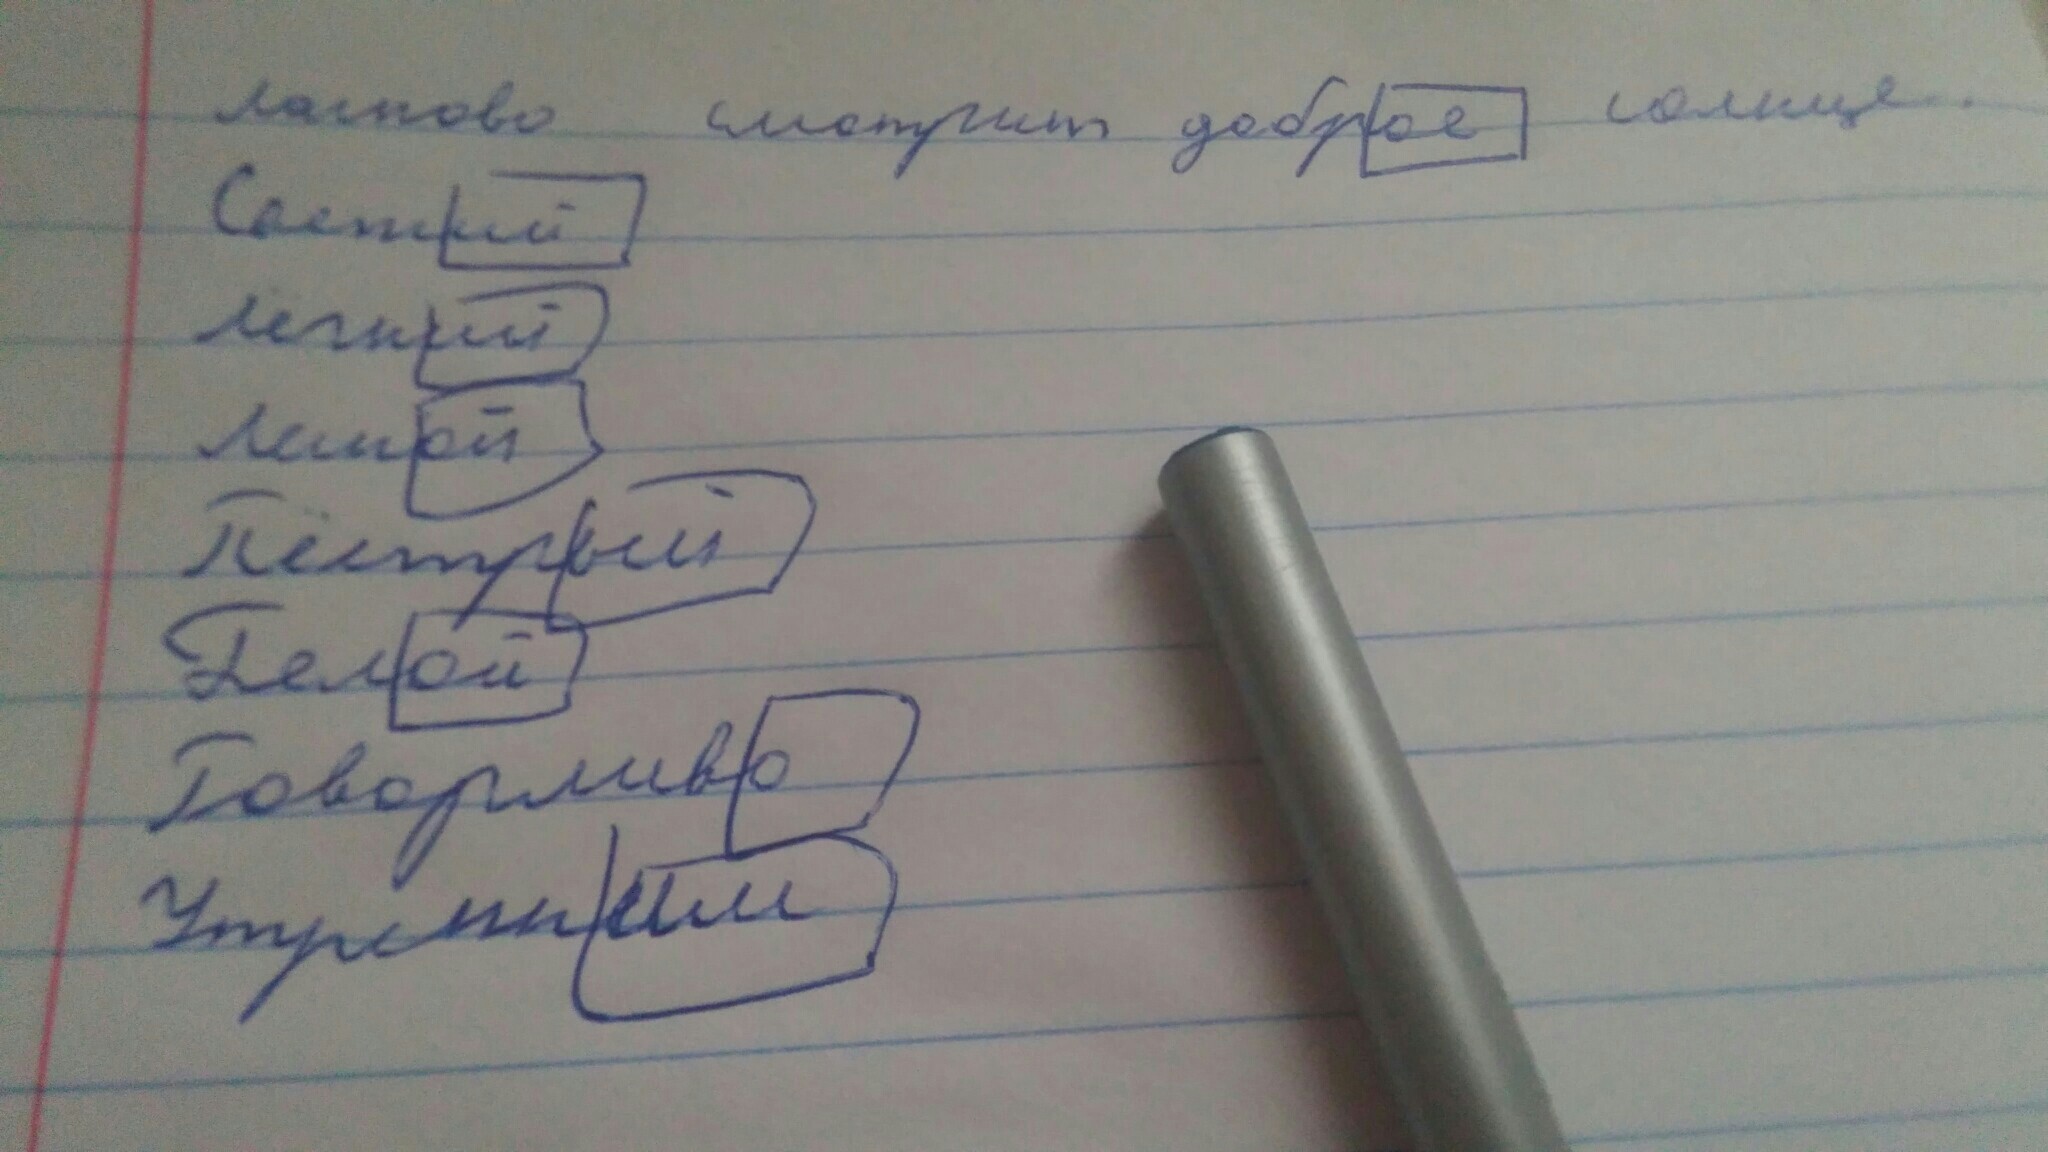 ласково смотрит доброе солнце..
Светлый
Лёгкий
Лесной
Пёстрый
Белой
Говорливо
Утренним